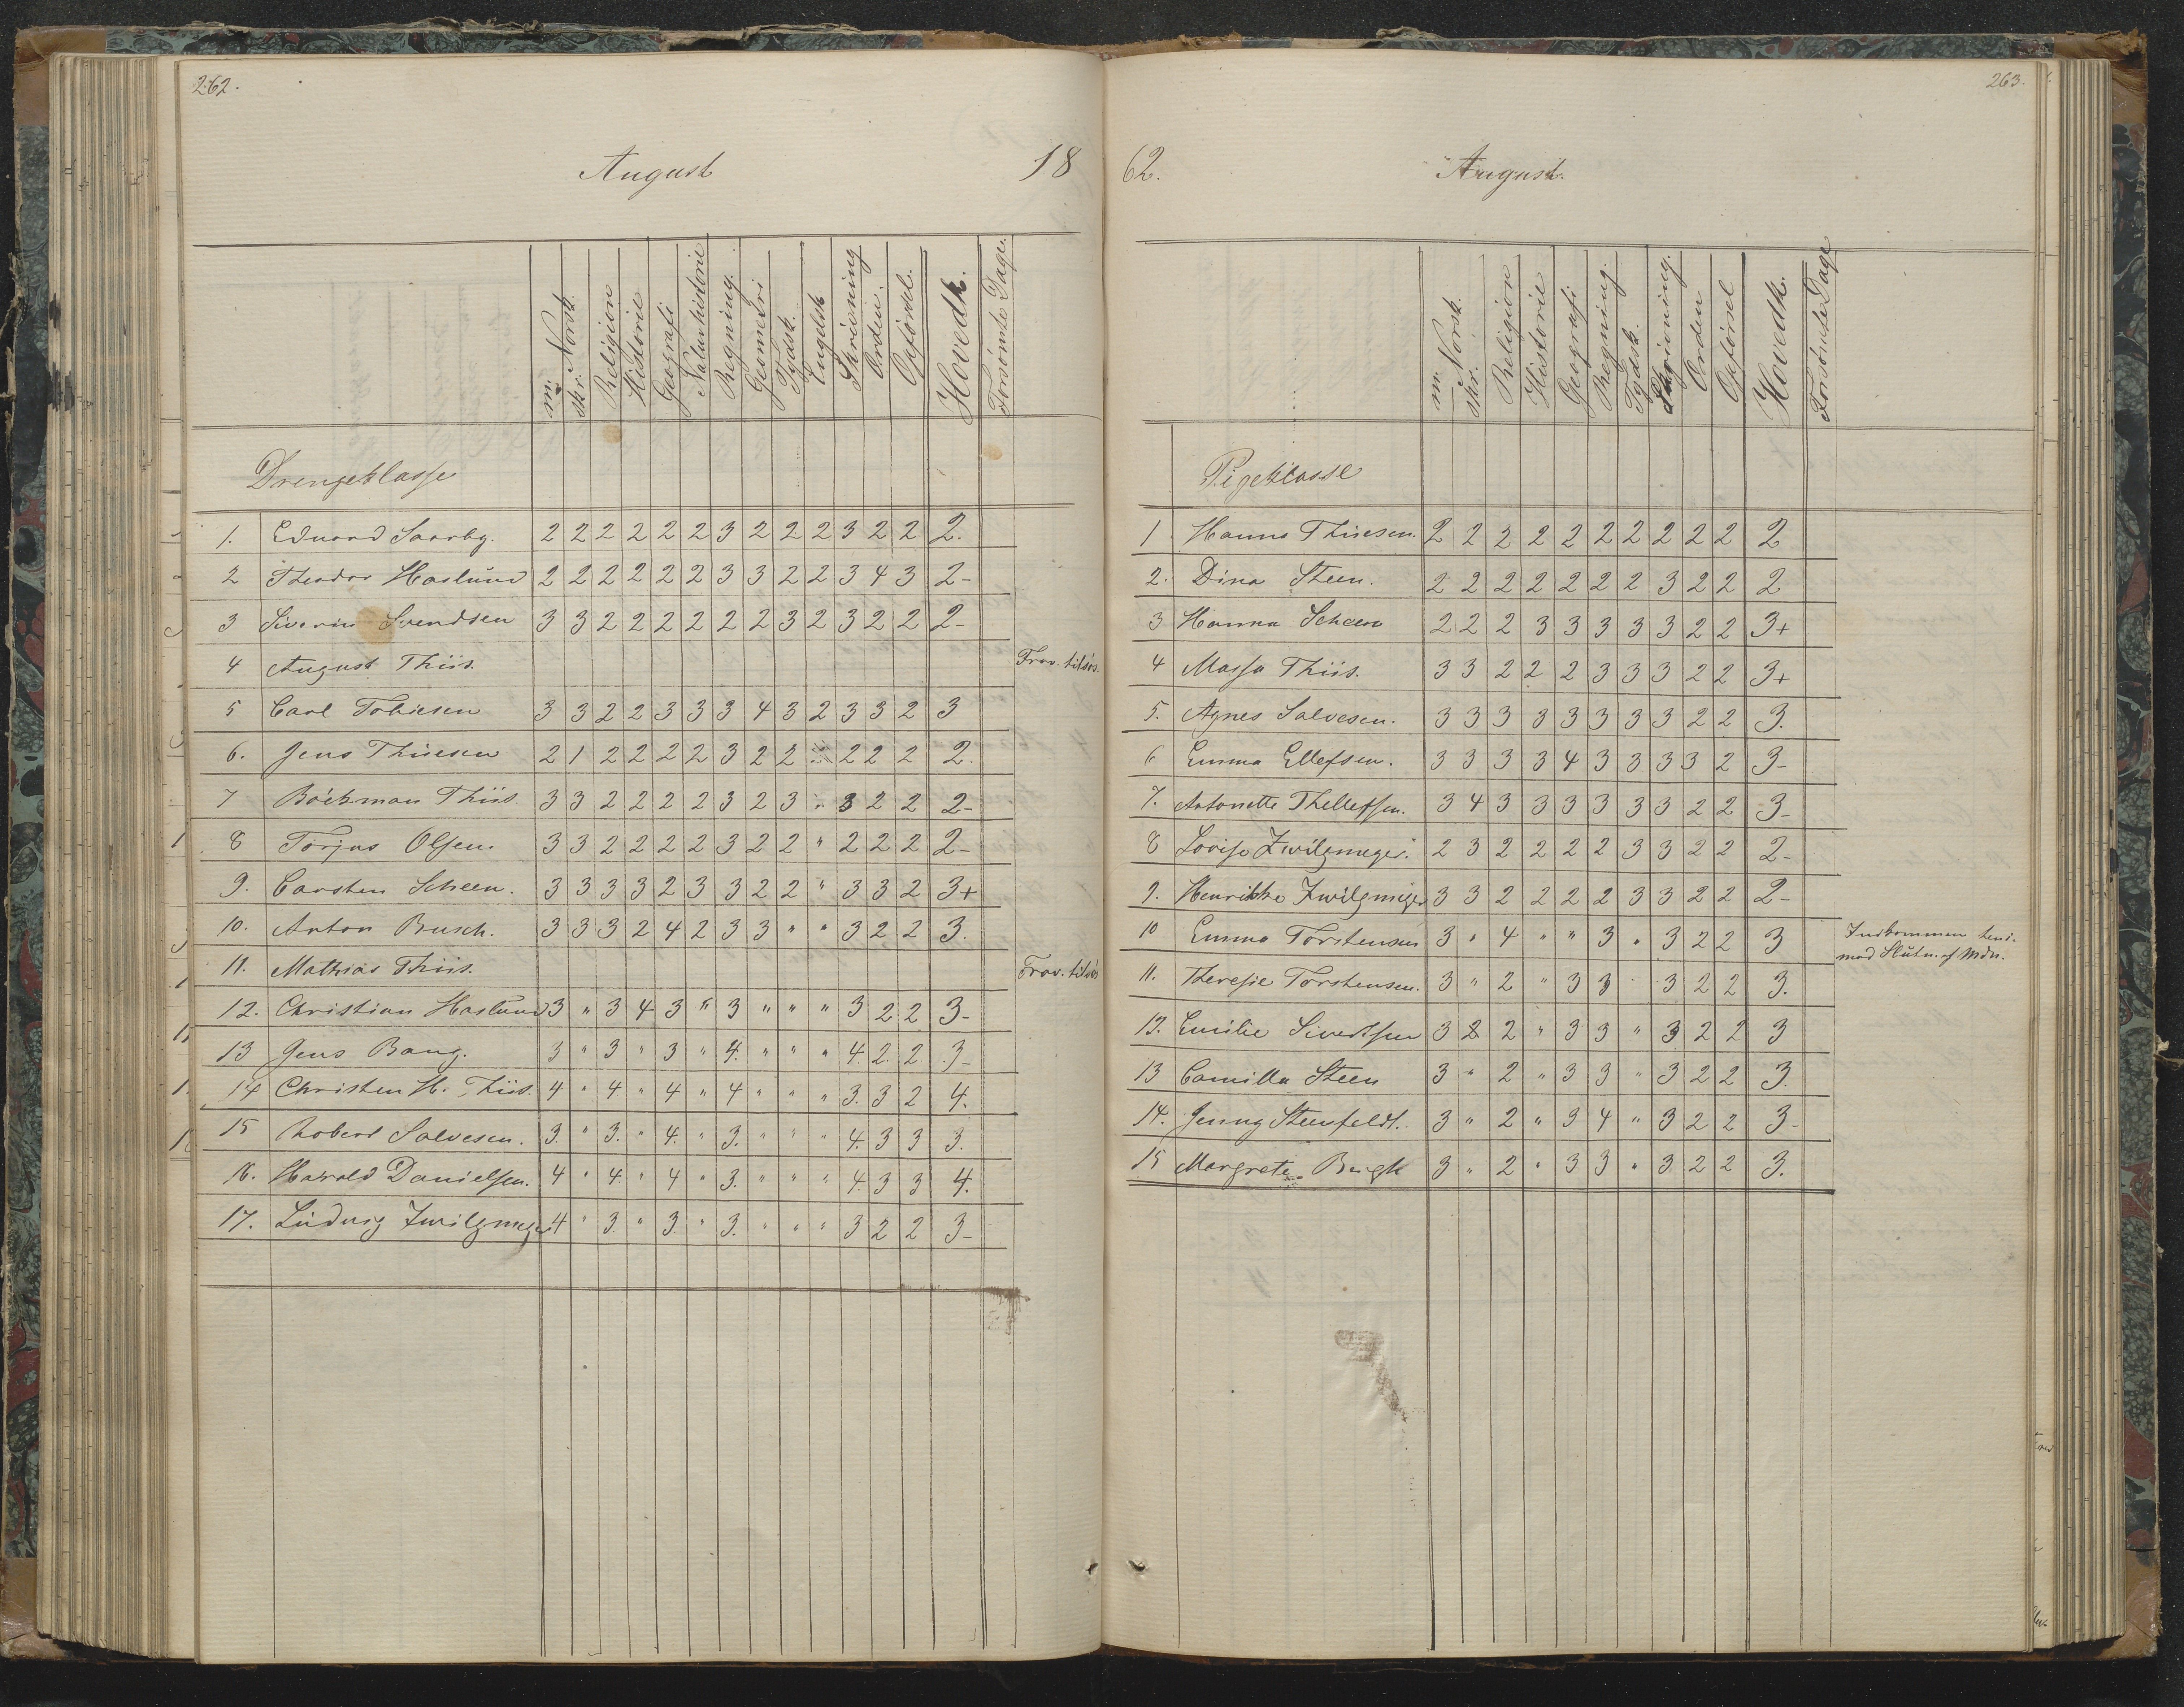 262.
August 18
m. Norsk. skr. Religion Historie Geografi Naturhistorie Regning. Geometri Tydsk. Engelsk Skrivning Orden. Opførsel. Hovedk. Forsømte Dage.
Drengeklasse
1. Eduard Saarby. 2 2 2 2 2 2 3 2 2 2 3 2 2 2.
2 Theodor Haslund 2 2 2 2 2 2 3 3 2 2 3 4 3 2-
3 Siverin Svendsen 3 3 2 2 2 2 2 2 3 2 3 2 2 2-
4 August Thiis. Frav. tilsøs.
5 Carl Tobiesen 3 3 2 2 3 3 3 4 3 2 3 3 2 3
6. Jens Thiesen 2 1 2 2 2 2 3 2 2 2 2 2 2.
7 Böckman Thiis. 3 3 2 2 2 2 3 2 3 " 3 2 2 2-
8 Torjus Olsen. 3 3 2 2 2 2 3 2 2 " 2 2 2 2-
9. Carsten Scheen. 3 3 3 3 2 3 3 2 2 " 3 3 2 3+
10. Anton Busch. 3 3 3 2 4 2 3 3 " " 3 2 2 3.
11. Mathias Thiis. Frav. tilsøs
12. Christian Haslund 3 " 3 4 3 " 3 " " " 3 2 2 3-
13 Jens Bang. 3 " 3 " 3 " 4. " " " 4. 2. 2 3-
14 Christen H. Thiis. 4 " 4 " 4 " 4 " " " 3. 3 2 4.
15 Robert Salvesen. 3. " 3. " 4. " 3. " " " 4. 3 3 3.
16. Harald Danielsen. 4 " 4. " 4 " 3. " " " 4. 3 3 4.
17. Ludvig Zwilgmeyer 4 " 3. " 3. " 3. " " " 3 2 2 3-
263.
62. August.
m. Norsk. skr. Religion Historie Geografi Regning. Tydsk. Skrivning. Orden Opførsel Hovedk. Forsømte Dage
Pigeklasse
1 Hanna Thiesen. 2 2 2 2 2 2 2 2 2 2 2
2. Dina Steen. 2 2 2 2 2 2 2 3 2 2 2
3 Hanna Scheen 2 2 2 3 3 3 3 3 2 2 3+
4 Massa Thiis. 3 3 2 2 2 3 3 3 2 2 3+
5. Agnes Salvesen. 3 3 3 3 3 3 3 3 2 2 3.
6 Emma Ellefsen. 3 3 3 3 4 3 3 3 3 2 3-
7. Antonette Thellefsen. 3 4 3 3 3 3 3 3 2 2 3-
8 Lovise Zwilgmeyer. 2 3 2 2 2 2 3 3 2 2 2-
9. Henrikke Zwilgmeyer 3 3 2 2 2 2 3 3 2 2 2-
10 Emma Torstensen 3 " 4 " " 3 " 3 2 2 3 Indkommen hen-
mod Slutn. af Mdn.
11. Theresie Torstensen. 3 " 2 " 3 3 " 3 2 2 3.
12. Emilie Sivertsen 3 2 2 " 3 3 " 3 2 2 3
13 Camilla Steen 3 " 2 " 3 3 " 3 2 2 3.
14. Jenny Steenfeldt. 3 " 2 " 3 4 " 3 2 2 3-
15 Margrete Bugh 3 " 2 " 3 3 " 3 2 2 3.